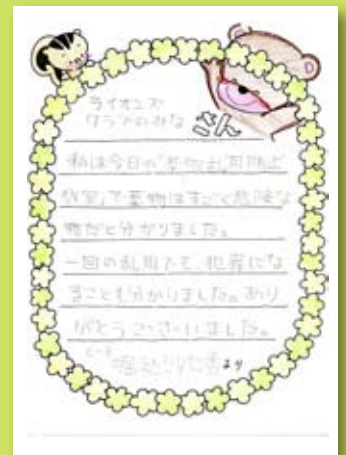 ライオンズ
クラブのみなさん
私は今日の「薬物乱用防止
教室」で薬物はすごく危険な
物だと分かりました。
一回の乱用でも、犯罪にな
ることも分かりました。あり
がとうございました。
より